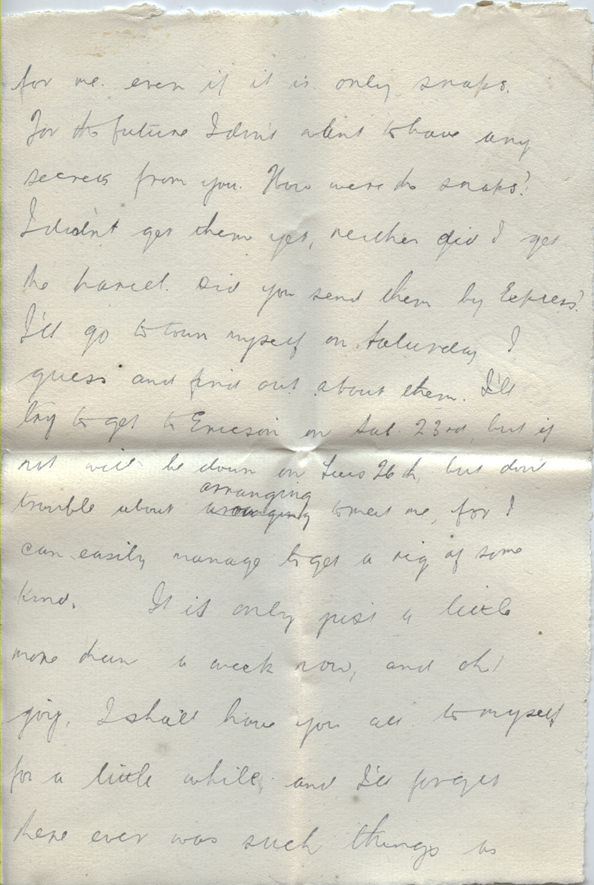 for me. even if it is only snaps.
For the future I don't want to have any
secrets from you. How were the snaps?
I didn't get them yet, neither did I get
the parcel. Did you send them by Express?
I'll go to town myself on Saturday I
guess and find out about them. I'll
try to get to Ericson on Sat. 23rd, but if
not will be down on Tues 26th, but don't
trouble about arranging to meet me, for I
can easily manage to get a rig of some
kind. It is only just a little
more than a week now, and oh!
joy, I shall have you all to myself
for a little while, and I'll forget
there ever was such things as